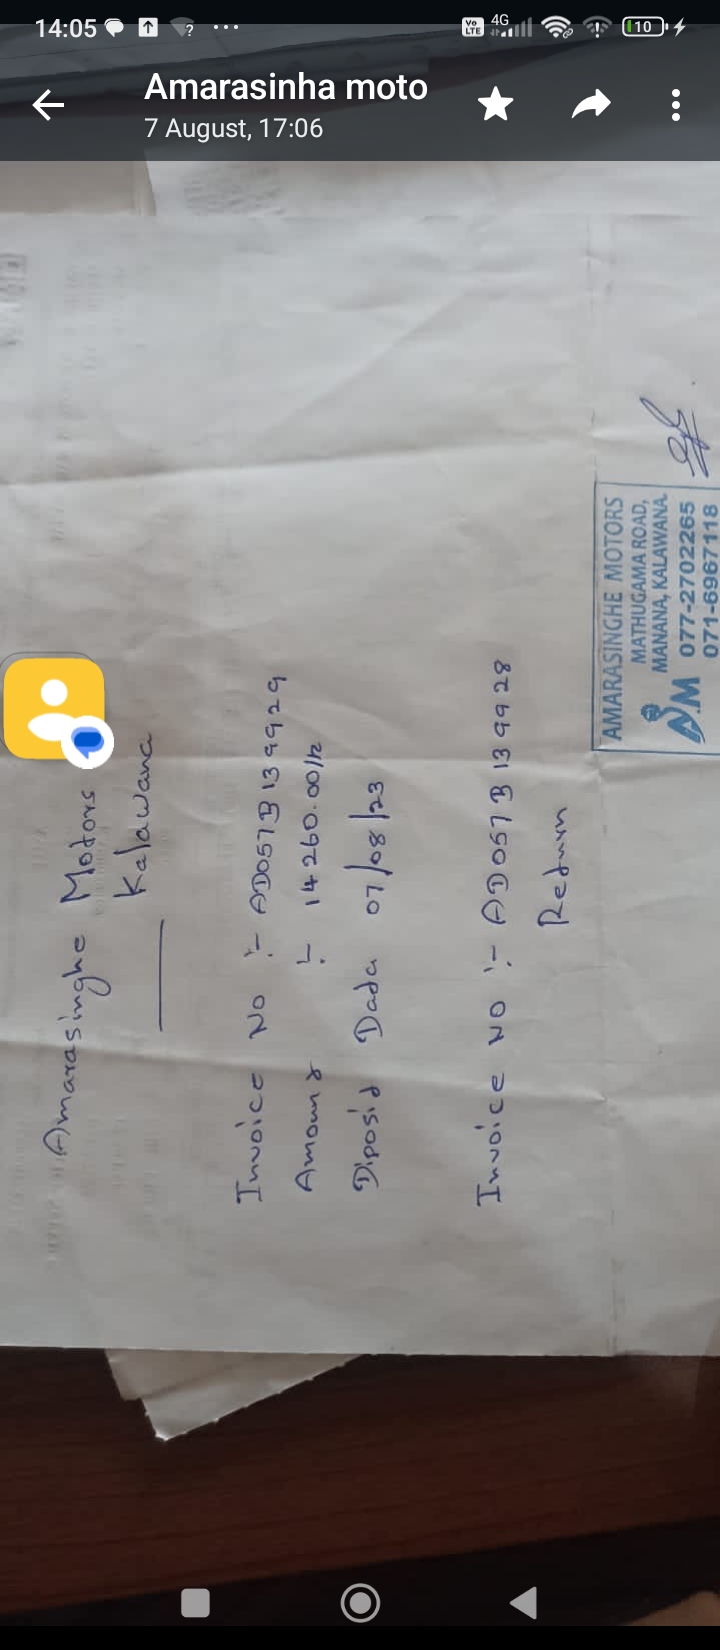 14:05
4G
Vo LTE
10
Amarasinha moto
7 August, 17:06
Amarasinghe Motors
Kalawana
Invoice No :- AD057B139929
Amount :- 14260.00/=
Diposit Data 07/08/23
Invoice NO :- AD057B139928
Return
AMARASINGHE MOTORS
MATHUGAMA ROAD,
MANANA, KALAWANA.
A.M 077-2702265
071-6967118